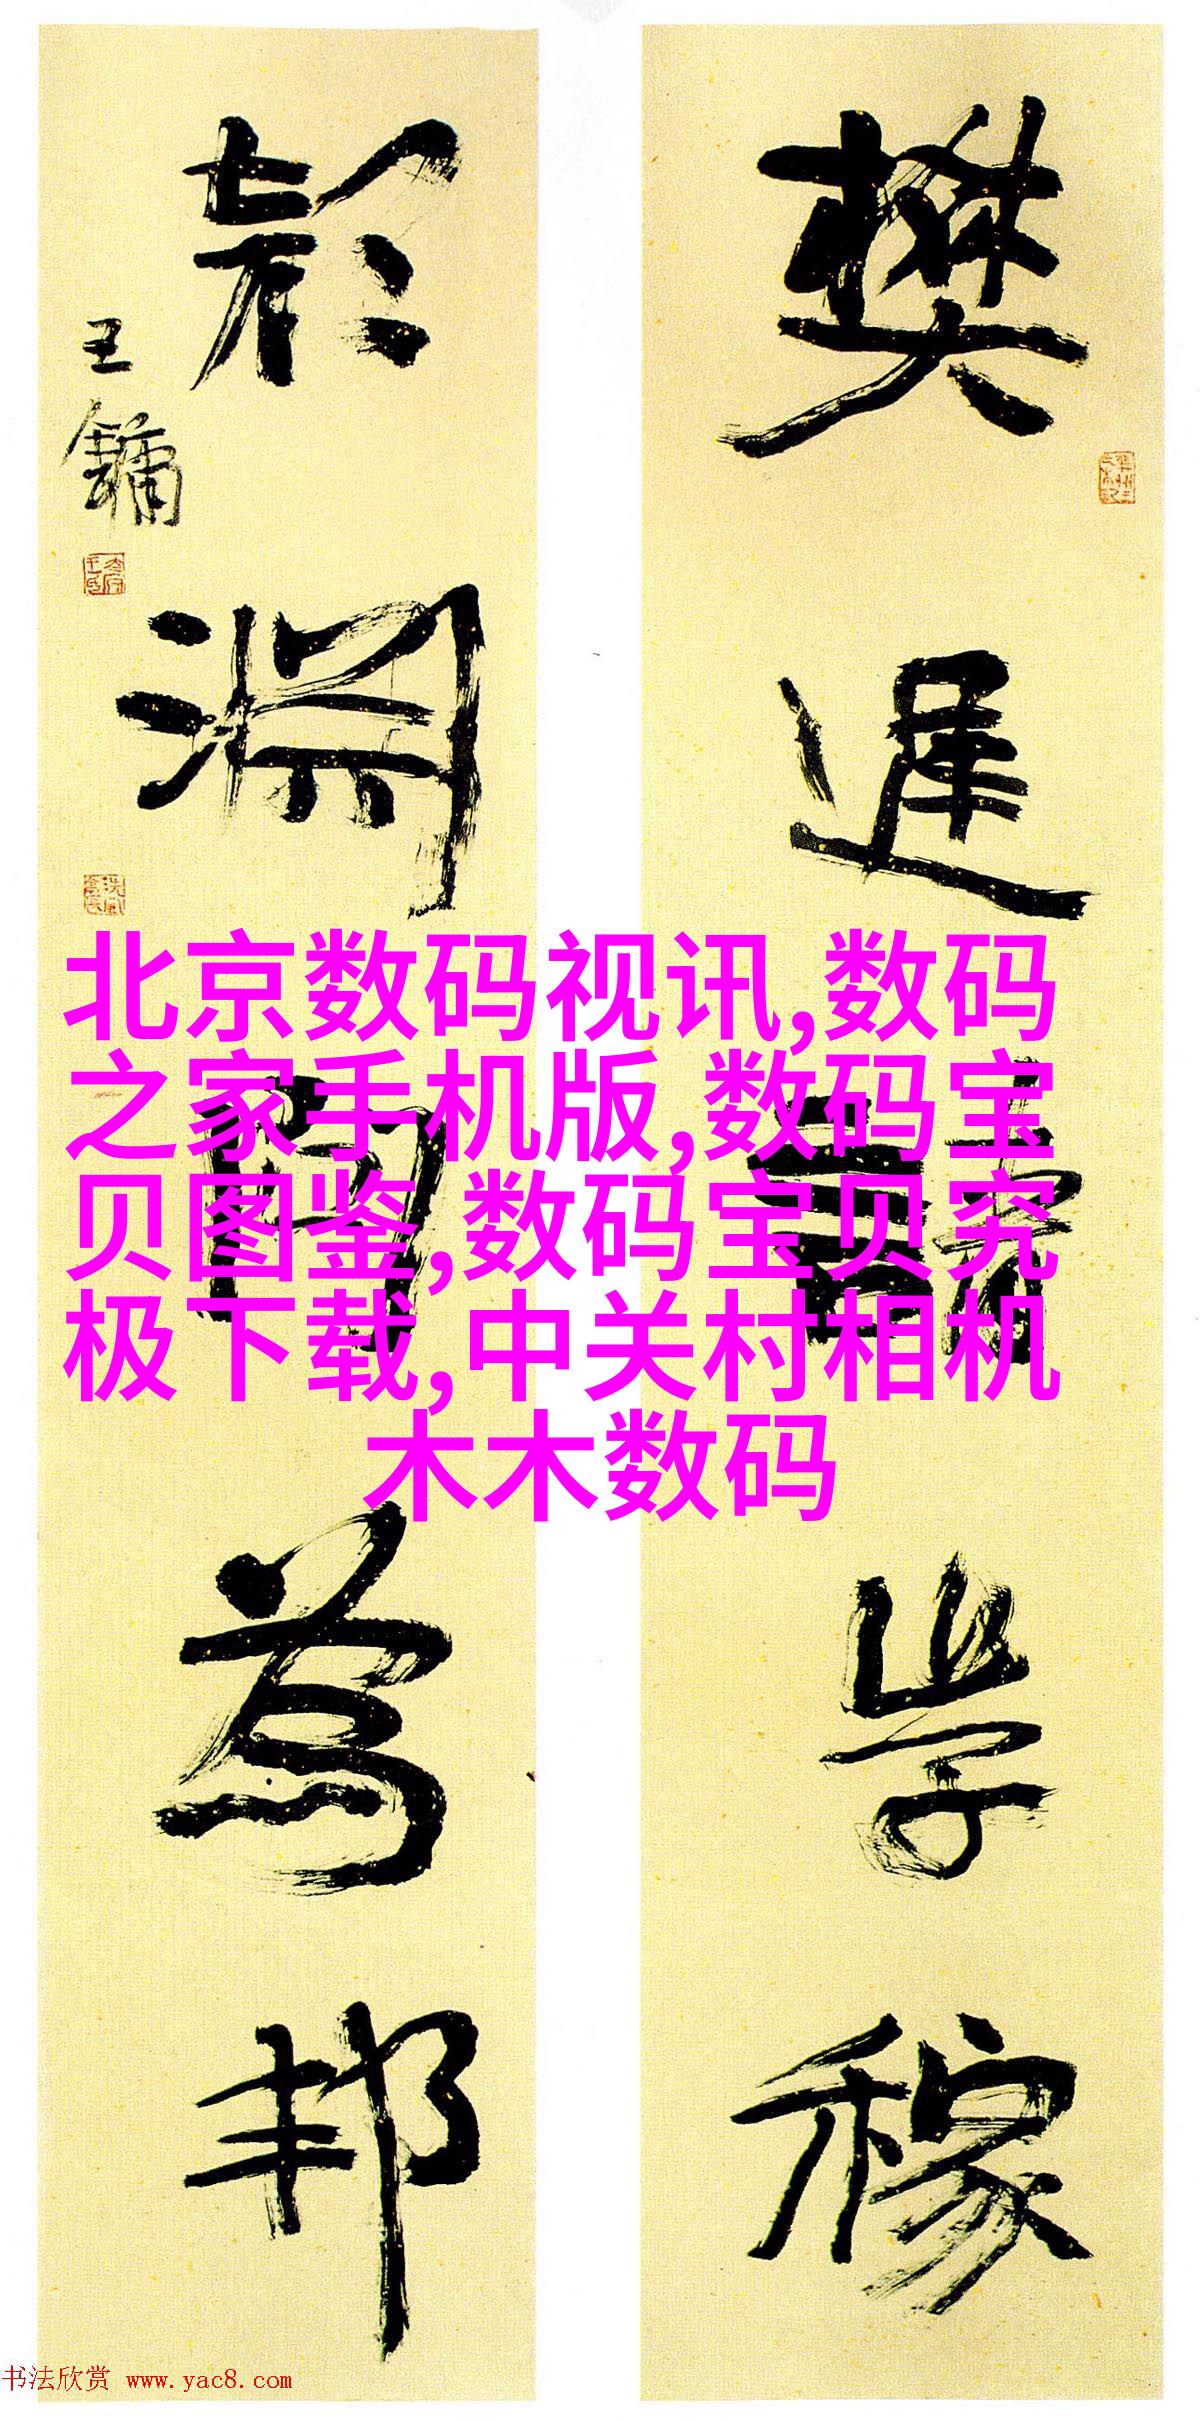 樊遲請學稼
顏淵問為邦
王鏞
北京数码视讯,数码
之家手机版,数码宝
贝图鉴,数码宝贝究
极下载,中关村相机
木木数码
书法欣赏 www.yac8.com